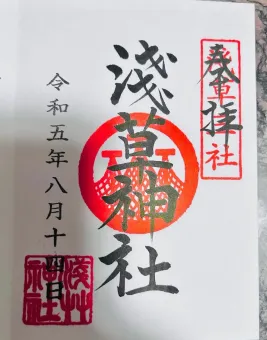 奉拝
浅草神社
令和五年八月十四日
浅草
神社